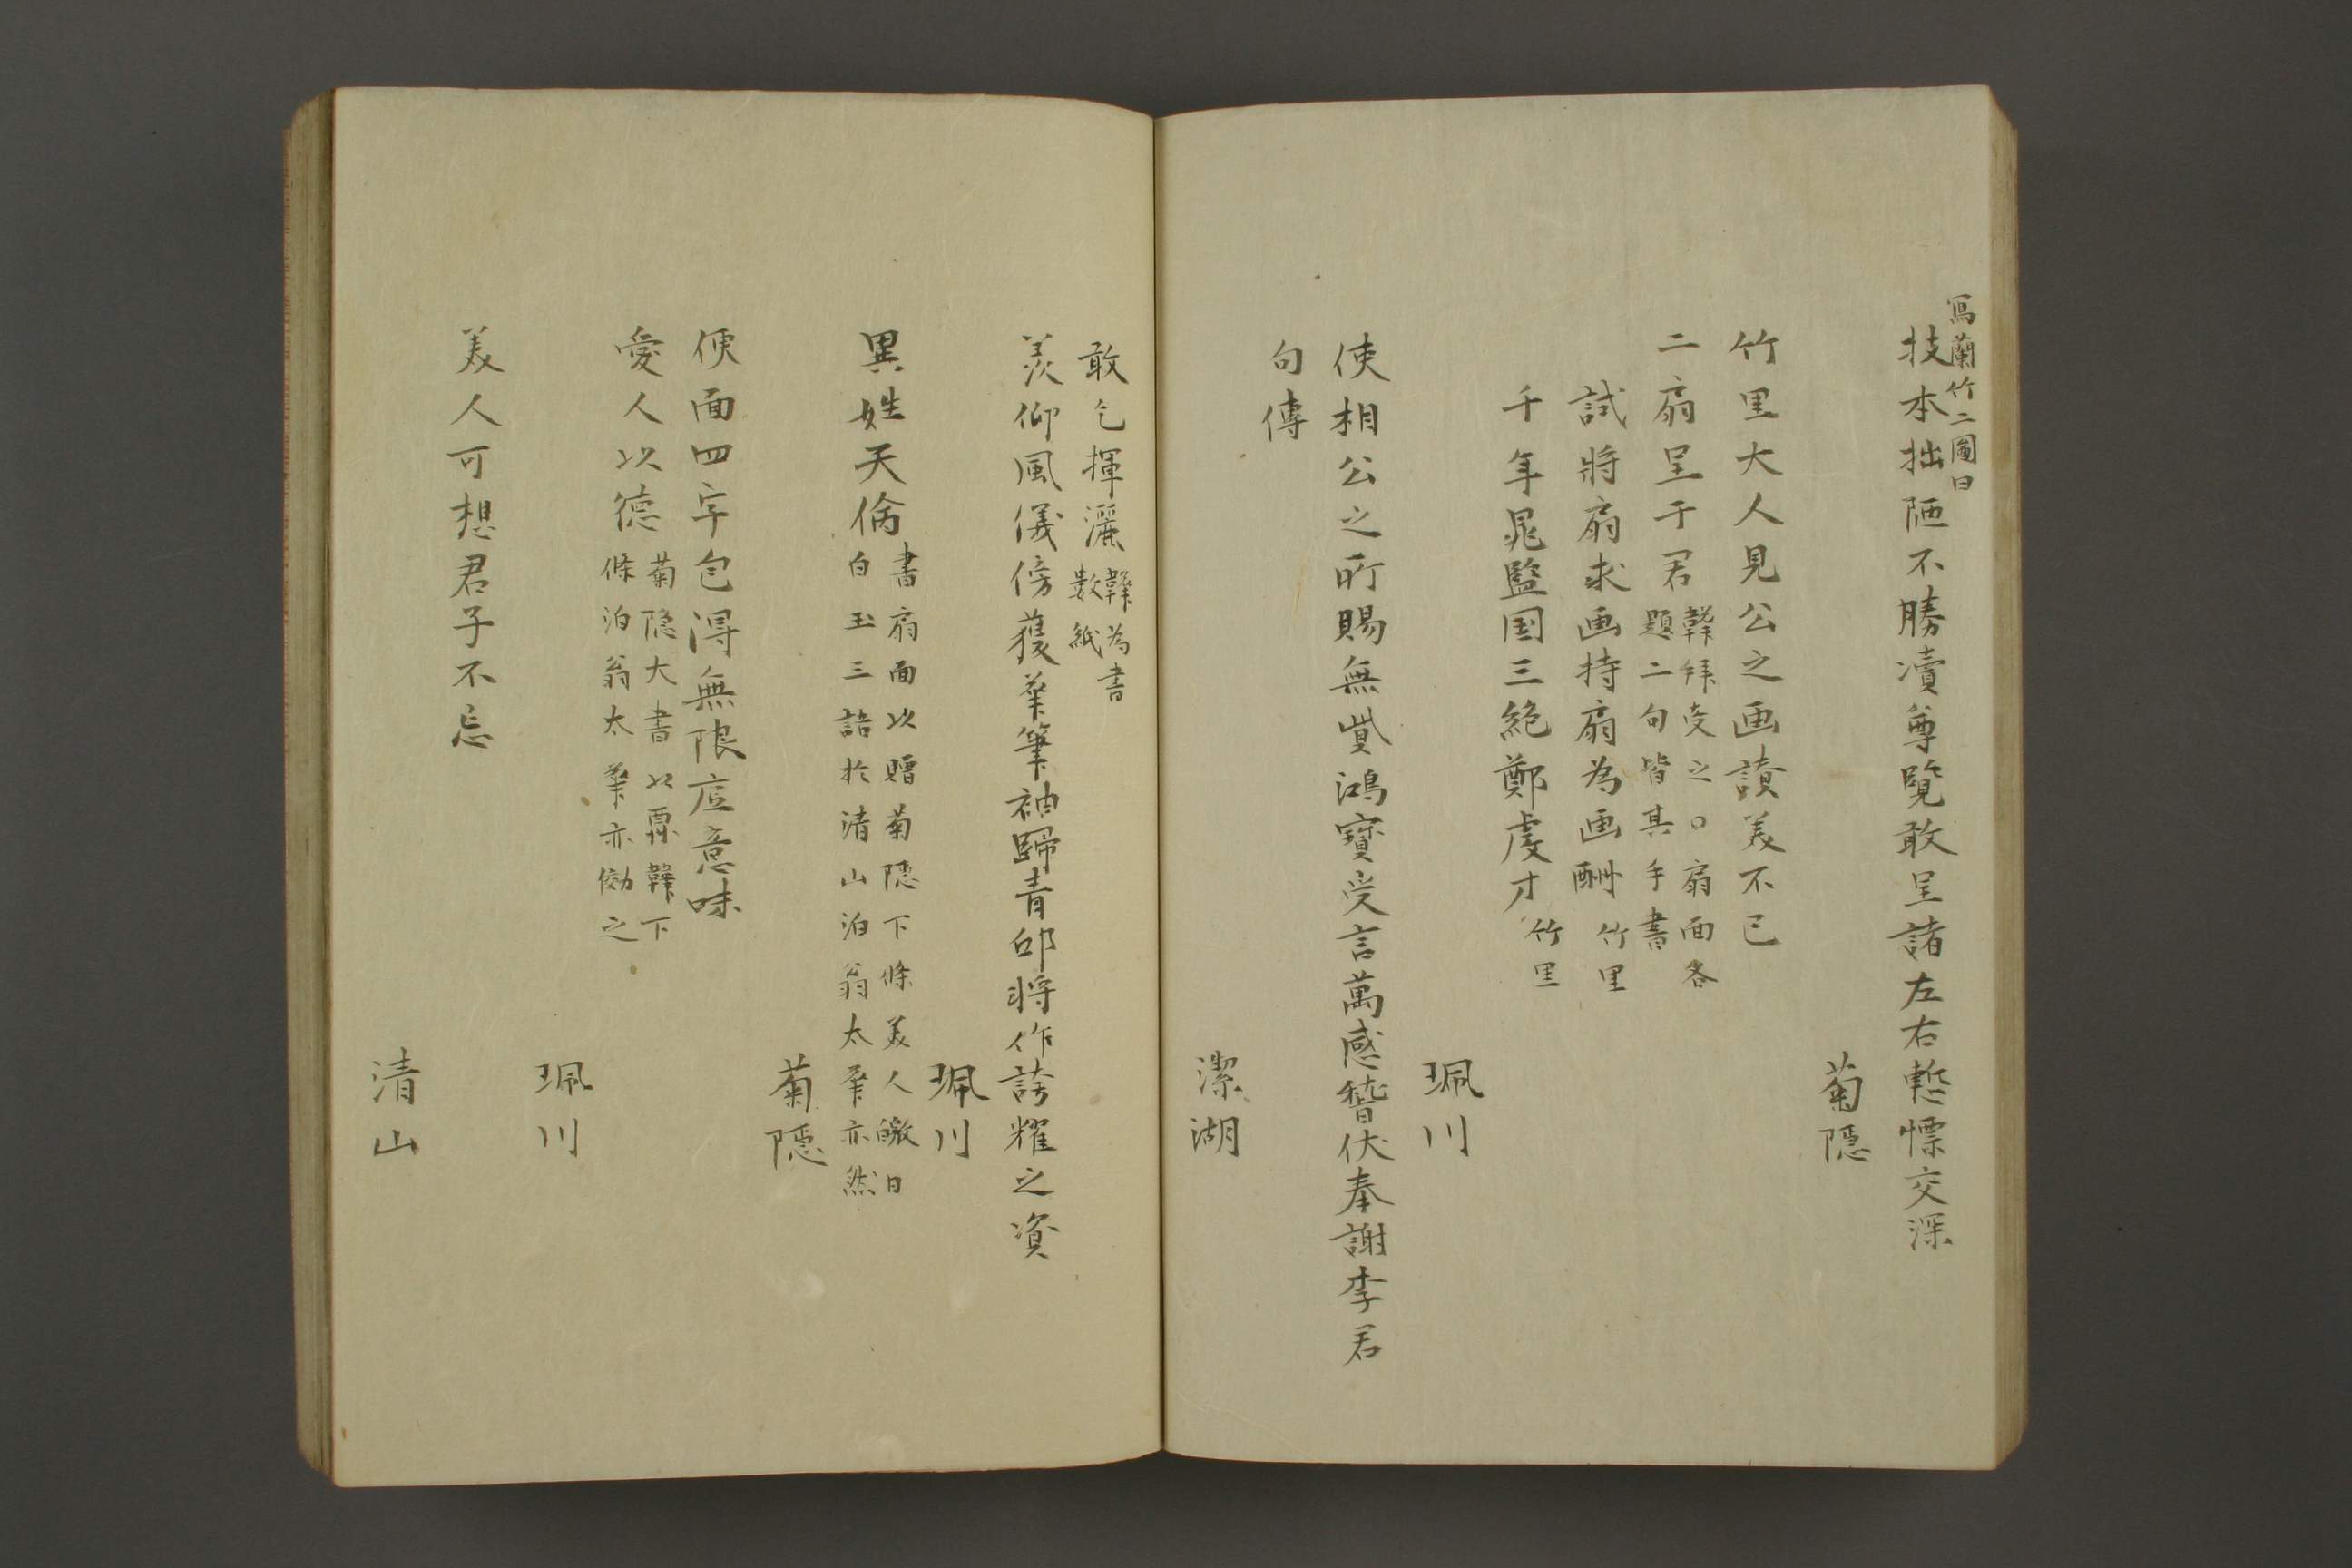 寫蘭竹二圖曰
技本拙陋不勝瀆尊覽敢呈諸左右慙慓交深
菊隱
竹里大人見公之画讀美不已
二扇呈于君
韡拜受之〇扇面各
題二句皆其手書
試將扇求画持扇為画酬 竹里
千年晁監国三絶鄭虔才 竹里
珮川
使相公之所賜無貲鴻寶受言萬感稽伏奉謝李君
句傳
潔湖
敢乞揮灑
韡為書
數紙
羨仰風儀傍獲華筆袖歸青邱将作誇耀之資
珮川
異姓天倫
書扇面以贈菊隱下條美人皦日
白玉三語於清山泊翁太華亦然
菊隱
便面四字包得無限底意味
愛人以德
菊隱大書以票韡下
條泊翁太華亦傚之
珮川
美人可想君子不忘
清山